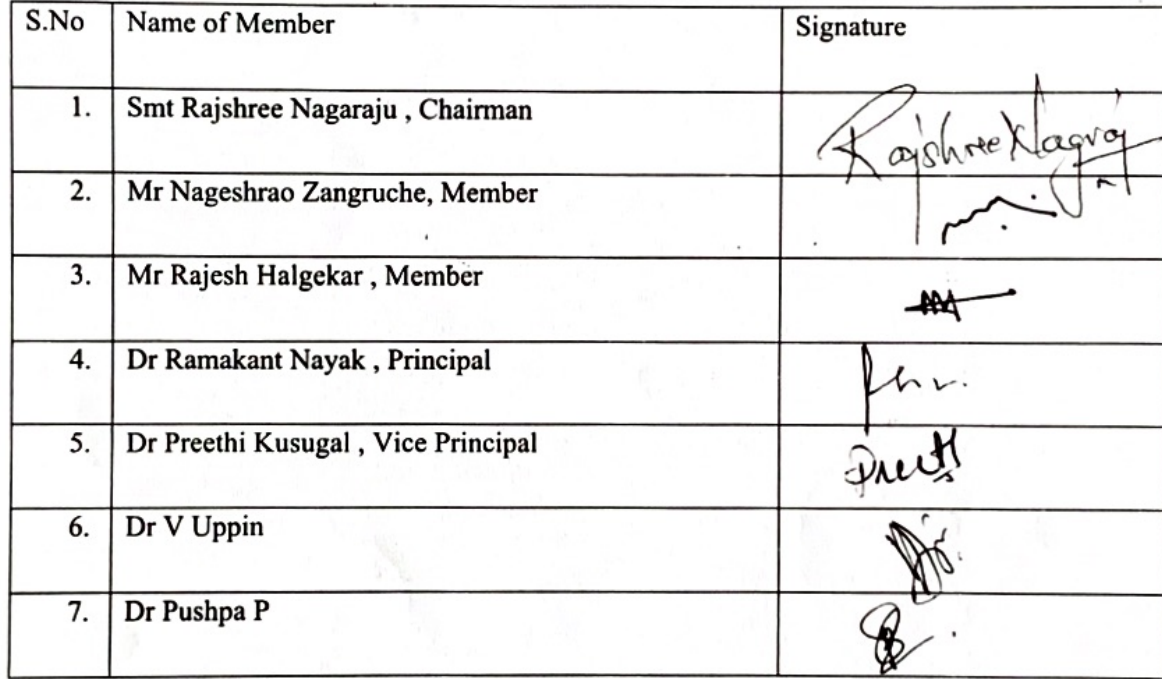 S.No Name of Member Signature
1. Smt Rajshree Nagaraju , Chairman Rajshree Nagraj
2. Mr Nageshrao Zangruche, Member
3. Mr Rajesh Halgekar , Member
4. Dr Ramakant Nayak , Principal
5. Dr Preethi Kusugal , Vice Principal Preeth
6. Dr V Uppin
7. Dr Pushpa P